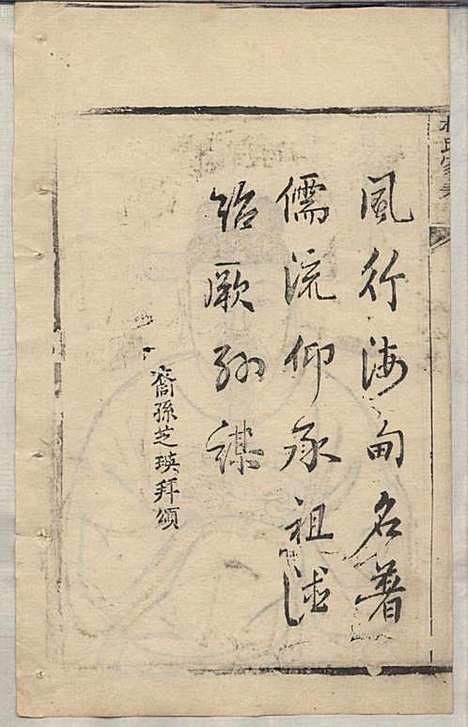 風行海甸名著
儒流仰承祖德
詒厥孫謀
裔孫芝瑛拜頌